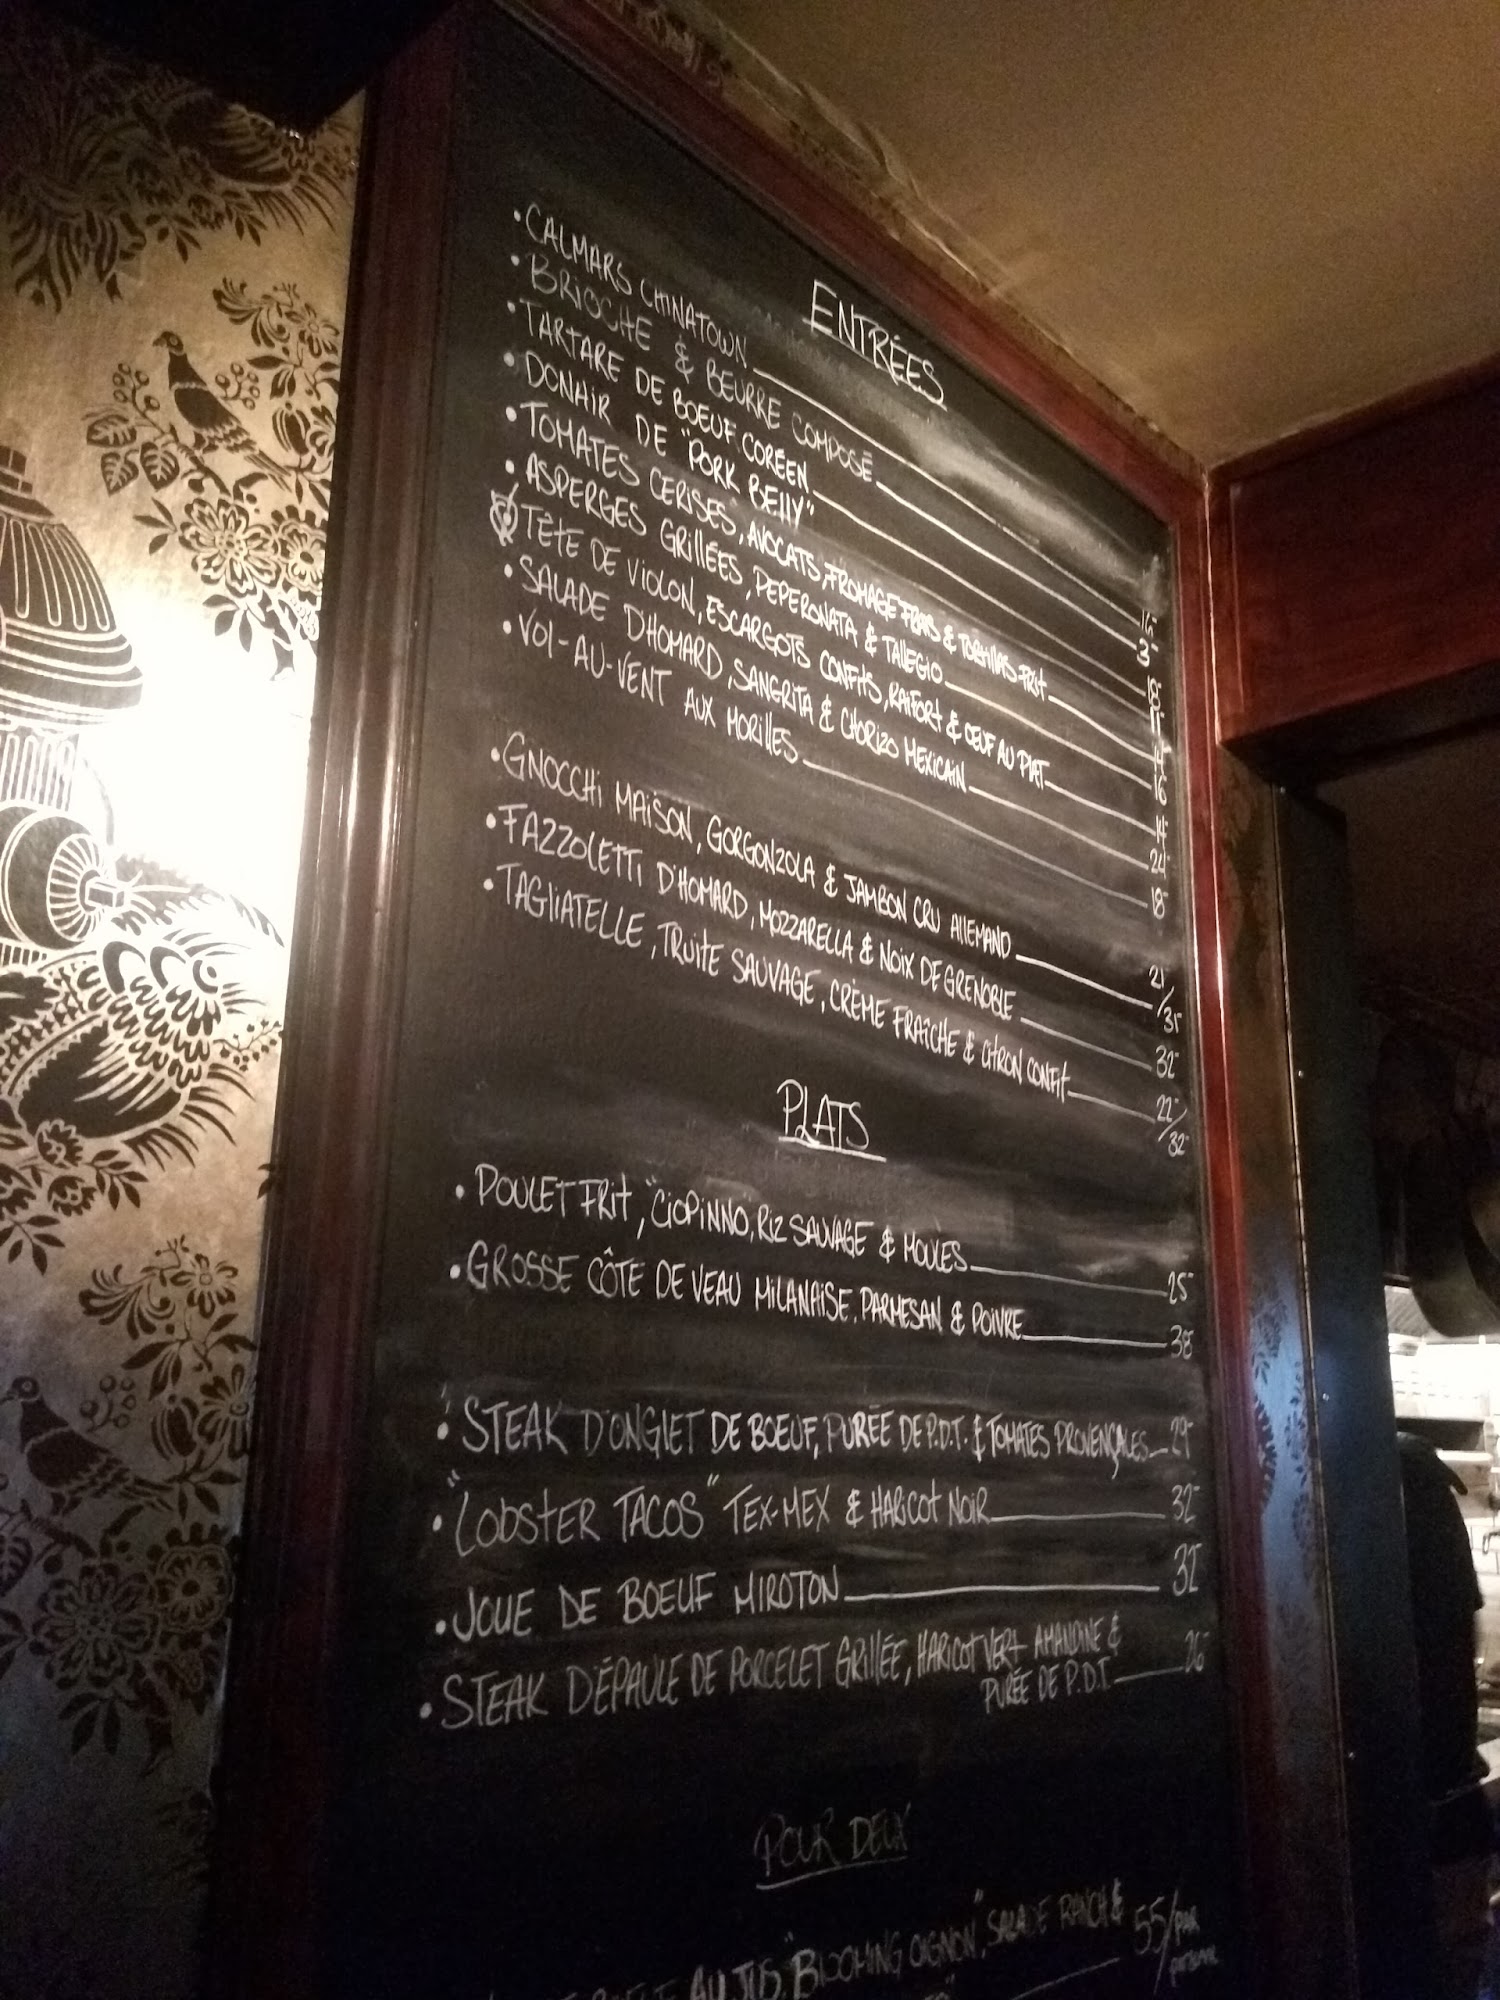 ENTRÉES
• CALMARS CHINATOWN
• BRIOCHE & BEURRE COMPOSÉ 3-
• TARTARE DE BOEUF CORÉEN 18-
• DONAIR DE "PORK BELLY"
• TOMATES CERISES, AVOCATS, FROMAGE FRAIS & TORTILLAS FRIT
• ASPERGES GRILLÉES, PEPERONATA & TALLEGIO 16-
TÊTE DE VIOLON, ESCARGOTS CONFITS, RAIFORT & OEUF AU PLAT 14-
• SALADE D'HOMARD, SANGRITA & CHORIZO MEXICAIN 24-
• VOL-AU-VENT AUX MORILLES 18-
• GNOCCHI MAISON, GORGONZOLA & JAMBON CRU ALLEMAND 21/31-
• FAZZOLETTI D'HOMARD, MOZZARELLA & NOIX DE GRENOBLE 32-
• TAGLIATELLE, TRUITE SAUVAGE, CRÈME FRAÎCHE & CITRON CONFIT 22-/32-
PLATS
• POULET FRIT, "CIOPINNO, RIZ SAUVAGE & MOULES 25-
• GROSSE CÔTE DE VEAU MILANAISE, PARMESAN & POIVRE 38-
• STEAK D'ONGLET DE BOEUF, PURÉE DE P.D.T. & TOMATES PROVENÇALES 29-
• "LOBSTER TACOS" TEX-MEX & HARICOT NOIR 32-
• JOUE DE BOEUF MIROTON 32-
• STEAK D'ÉPAULE DE PORCELET GRILLÉE, HARICOT VERT AMANDINE &
PURÉE DE P.D.T. 26-
POUR DEUX
AU JUS, "BLOOMING OIGNON", SALADE RANCH & 55/PAR